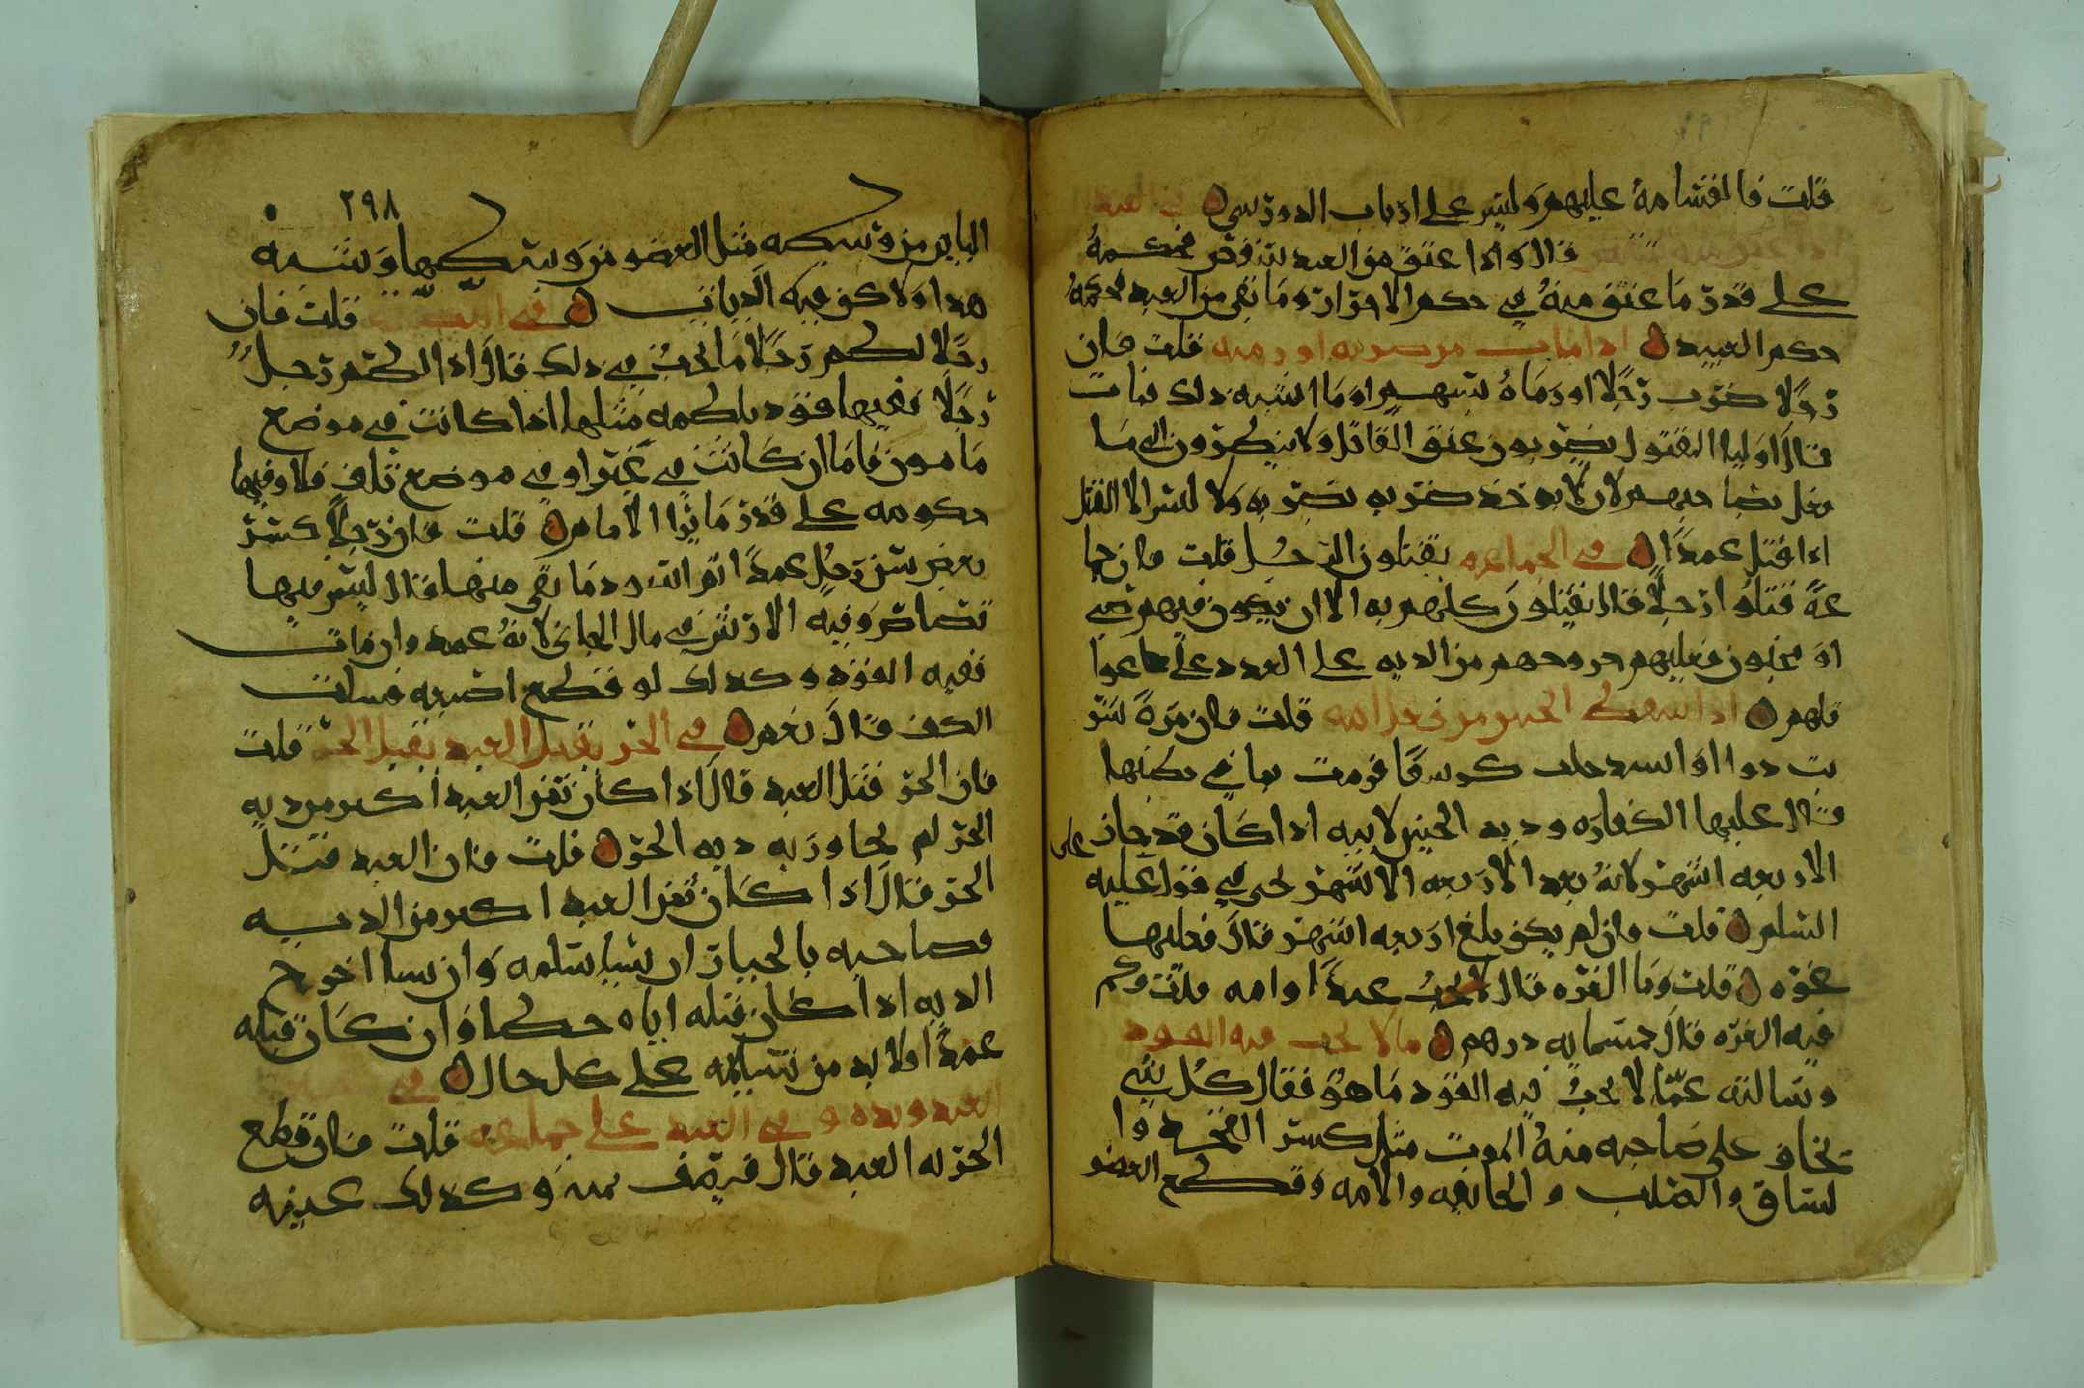 قلت فالقسامة عليهم وليس على ارباب الدور شي
قال واذا عتق من العبد شقص فحكمه
على قدر ما عتق منه في حكم الاحرار وما بقي من العبد فحكمه
حكم العبيد اذا مات من ضربه او رميه قلت فان
رجلا ضرب رجلا او رماه بسهم او ما اشبه ذلك فمات
قال اوليا المقتول يضربون عنق القاتل ولا ينظرون الى ما
فعل بصاحبهم لان لا يوخذ ضربه بضربه ولا ليس الا القتل
اذا قتل عمدا في الجماعه يقتلون الرجل قلت فان جما
عة قتلوا رجلا قال يقتلون كلهم به الا ان يكون فيهم صبي
او مجنون فعليهم من الديه على العدد على
قلهم قلت فان مره شر
بت دوا او فرمت بما في بطنها
قال عليها الكفاره وديه الجنين لابيه اذا كان قد جاز على
الاربعه اشهر لانه بعد الاربعه الاشهر في قول عليه
السلم قلت فان لم يكن بلغ اربعه اشهر قال فعليها
غره قلت وما الغره قال عبدا او امه قلت وكم
قيه الغره قال خمسمايه درهم ما لا يجب فيه القود
وسالته عما لا يجب فيه القود ما هو فقال كل شي
يخاف على صاحبه منه الموت مثل كسر الفخد وا
لساق والصلب والجايفه والامه وقطع العضو
٢٩٨
الباين من وسطه مثل العضو من وسطها وشبه
هذا ولاكن فيه الديات في قلت فان
رجلا لطم رجلا ما يجب في ذلك قال اذا لطم رجل
رجلا فعليها قود بلطمه مثلها اذا كانت في موضع
مامون فاما ان كانت في عين او في موضع تلف فلا وفيها
حكومه على قدر ما يرا الامام قلت فان رجلا كسر
بعض سن رجل عمدا ثم اسود ما بقي منها قال ليس فيها
قصاص وفيه الارش في مال الجاني لانه عمد وان مات
ففيه القود وكذلك لو قطع اصبعه فسلت
الكف قال نعم في الحر يقتل العبد يقتل الحر قلت
فان الحر قتل العبد قال اذا كان ثمن العبد اكثر من ديه
الحر لم يجاوز به ديه الحر قلت فان العبد قتل
الحر قال اذا كان ثمن العبد اكثر من الديه
فصاحبه بالخيار ان شا سلمه وان شا اخرج
الديه اذا كان قتله اياه خطا وان كان قتله
عمدا ولا بد من تسليمه على كل حال في
العبد و في العبد على جماعه قلت فان قطع
الحر يد العبد قال فنصف ثمنه وكذلك عينه